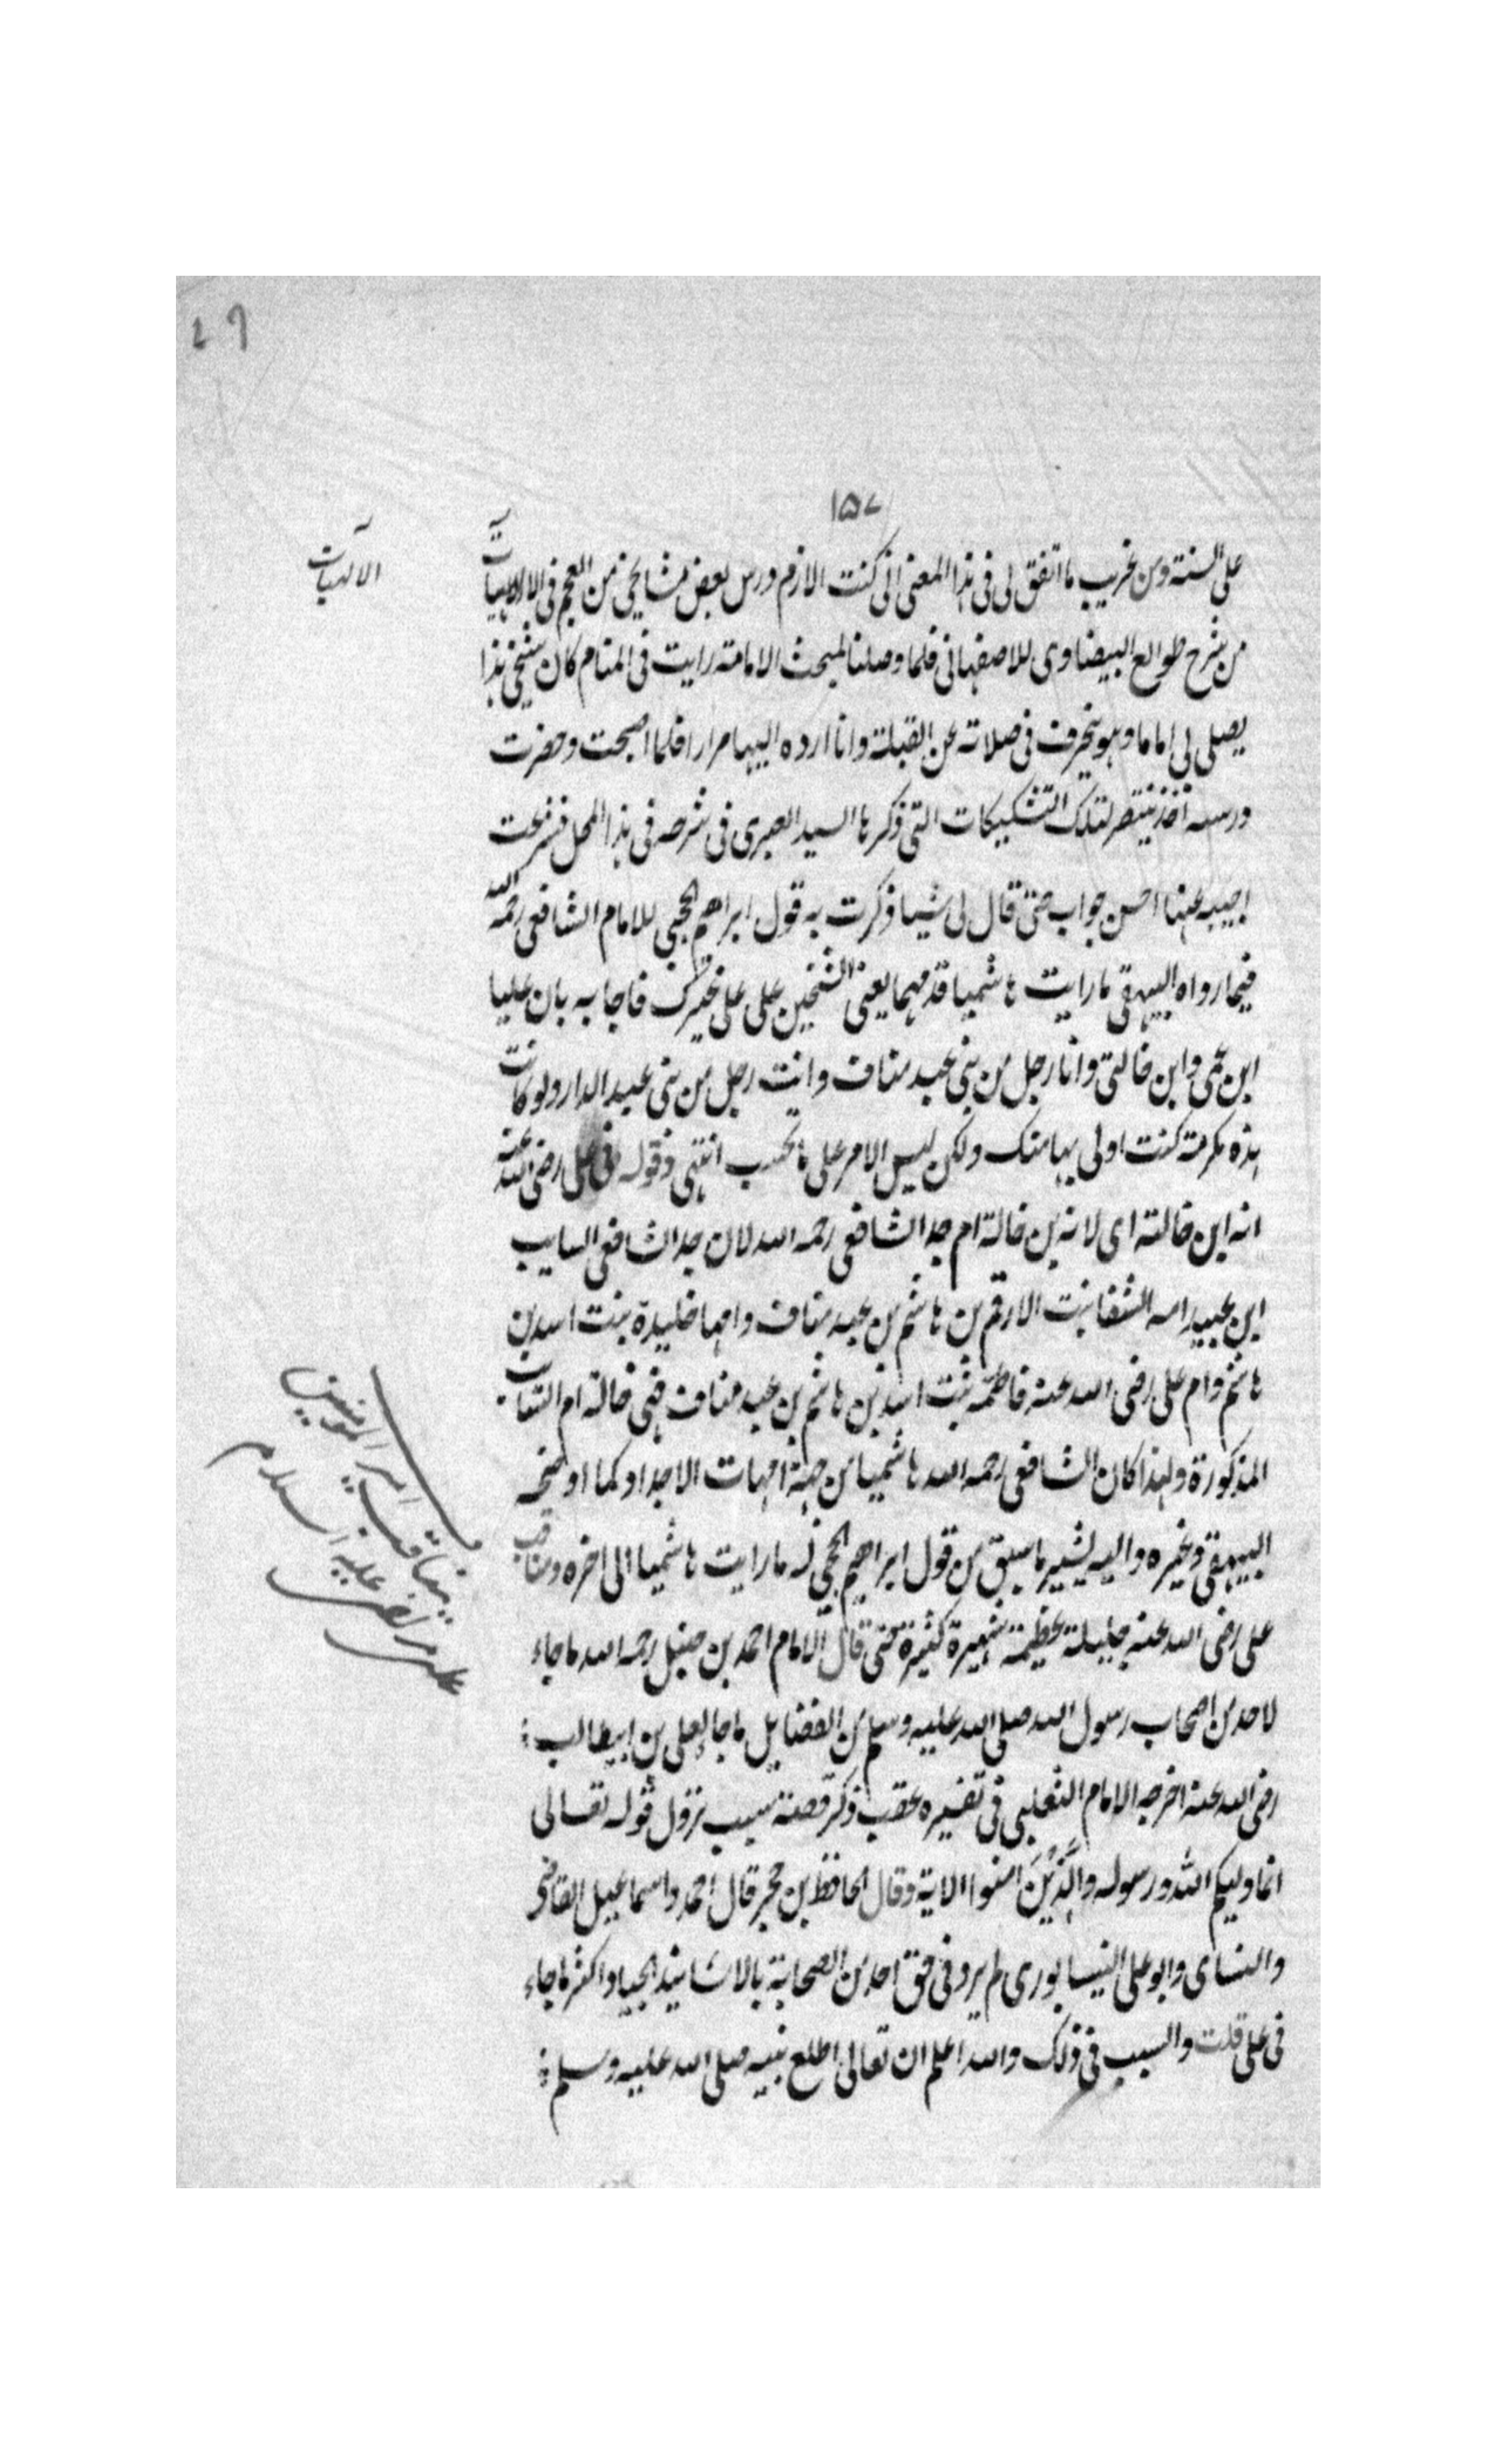 ١٥٧
على السنة ومن غريب ما اتفق لى فى هذا المعنى انى كنت الازم درس بعض مشايخى من العجم فى الالهيات
الالهيات
من شرح طوالع البيضاوى للاصفهانى فلما وصلنا لمبحث الامامة رايت فى المنام كان شيخى هذا
يصلى لى اماما وهو ينحرف فى صلاته عن القبلة وانا ارده اليها مرارا فلما اصبحت وحضرت
درسه اخذ ينتصر لتلك التشكيكات التى ذكرها السيد العبرى فى شرحه فى هذا المحل فشرعت
اجيبه عنها احسن جواب حتى قال لى شيا ذكرت به قول ابراهيم الحجبى للامام الشافعى رحمه الله
فيما رواه البيهقى ما رايت هاشميا قدمهما يعنى الشيخين على على غيرك فاجابه بان عليا
ابن عمى وابن خالتى وانا رجل من بنى عبد مناف وانت رجل من بنى عبد الدار ولو كانت
هذه مكرمة كنت اولى بها منك ولكن ليس الامر على ما تحسب انتهى وقوله فى على رضى الله عنه
انه ابن خالته اى لانه ابن خالة ام جد الشافعى رحمه الله لان جد الشافعى السايب
ابن عبيد امه الشفا بنت الارقم بن هاشم بن عبد مناف وامها خليدة بنت اسد بن
هاشم وام على رضى الله عنه فاطمة بنت اسد بن هاشم بن عبد مناف فهى خالة ام السايب
المذكورة ولهذا كان الشافعى رحمه الله هاشميا من جهة امهات الاجداد كما اوضحه
البيهقى وغيره واليه يشير ما سبق من قول ابراهيم الحجبى له ما رايت هاشميا الى اخره ومناقب
على رضى الله عنه جليلة عظيمة شهيرة كثيرة حتى قال الامام احمد بن حنبل رحمه الله ما جاء
لاحد من اصحاب رسول الله صلى الله عليه وسلم من الفضايل ما جا لعلى بن ابيطالب
رضى الله عنه اخرجه الامام الثعلبى فى تفسيره عقب ذكر قصة سبب نزول قوله تعالى
انما وليكم الله ورسوله والَّذِيْنَ امنوا الاية وقال الحافظ بن حجر قال احمد واسماعيل القاضى
والنساى وابو على النيسابورى لم يرو فى حق احد من الصحابة بالاسانيد الجياد اكثر ما جاء
فى على قلت والسبب فى ذلك والله اعلم ان تعالى اطلع نبيه صلى الله عليه وسلم
امير المومنين
عليه السلام